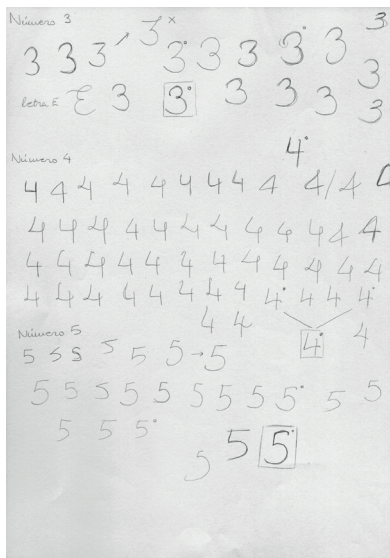 Número 3
3 3 3 3 × 3 3 3 3 3 3 3
letra E E 3 3 3 3 3 3
Número 4
4
4 4 4 4 4 4 4 4 4 4 / 4 4
4 4 4 4 4 4 4 4 4 4 4 4 4
4 4 4 4 4 4 4 4 4 4 4 4 4
4 4 4 4 4 4 4 4 4 4 4
4 4 4 4
Número 5
5 5 5 5 5 5 → 5
5 5 5 5 5 5 5 5 5 5 5 5
5 5 5
5 5 5